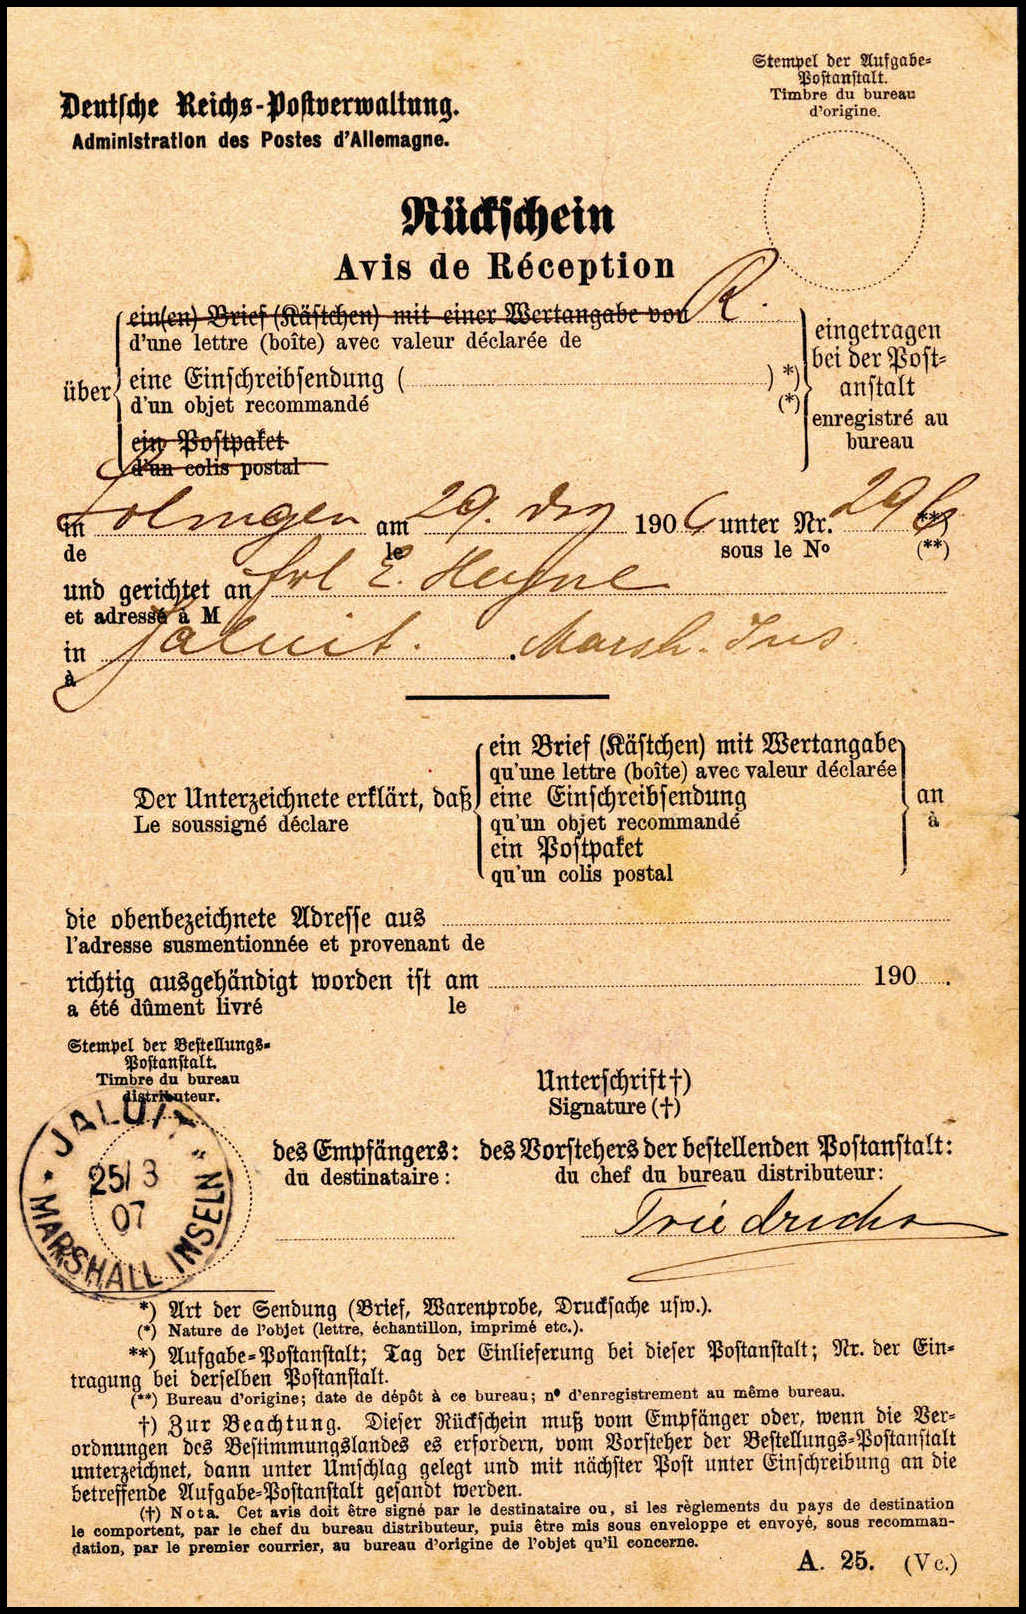 Stempel der Aufgabe-
Postanstalt.
Timbre du bureau
d'origine.
Deutsche Reichs-Postverwaltung.
Administration des Postes d'Allemagne.
Rückschein
Avis de Réception
ein(en) Brief (Kästchen) mit einer Wertangabe von R.
d'une lettre (boîte) avec valeur déclarée de
über
eine Einschreibsendung ( ) *)
d'un objet recommandé (*)
ein Postpaket
d'un colis postal
eingetragen
bei der Post-
anstalt
enregistré au
bureau
in Solingen am 29. Dez 1906 unter Nr. 298 **)
de le sous le No (**)
und gerichtet an Frl E. Heyne
et adressé à M
in Jaluit. Marsh. Ins
à
ein Brief (Kästchen) mit Wertangabe
qu'une lettre (boîte) avec valeur déclarée
Der Unterzeichnete erklärt, daß eine Einschreibsendung an
Le soussigné déclare qu'un objet recommandé à
ein Postpaket
qu'un colis postal
die obenbezeichnete Adresse aus
l'adresse susmentionnée et provenant de
richtig ausgehändigt worden ist am 190 .
a été dûment livré le
Stempel der Bestellungs-
Postanstalt.
Timbre du bureau
distributeur.
JALUIT
25/3
07
* MARSHALL INSELN *
Unterschrift†)
Signature (†)
des Empfängers: des Vorstehers der bestellenden Postanstalt:
du destinataire: du chef du bureau distributeur:
Friedrichs
*) Art der Sendung (Brief, Warenprobe, Drucksache usw.).
(*) Nature de l'objet (lettre, échantillon, imprimé etc.).
**) Aufgabe-Postanstalt; Tag der Einlieferung bei dieser Postanstalt; Nr. der Ein-
tragung bei derselben Postanstalt.
(**) Bureau d'origine; date de dépôt à ce bureau; no d'enregistrement au même bureau.
†) Zur Beachtung. Dieser Rückschein muß vom Empfänger oder, wenn die Ver-
ordnungen des Bestimmungslandes es erfordern, vom Vorsteher der Bestellungs-Postanstalt
unterzeichnet, dann unter Umschlag gelegt und mit nächster Post unter Einschreibung an die
betreffende Aufgabe-Postanstalt gesandt werden.
(†) Nota. Cet avis doit être signé par le destinataire ou, si les règlements du pays de destination
le comportent, par le chef du bureau distributeur, puis être mis sous enveloppe et envoyé, sous recomman-
dation, par le premier courrier, au bureau d'origine de l'objet qu'il concerne.
A. 25. (Vc.)